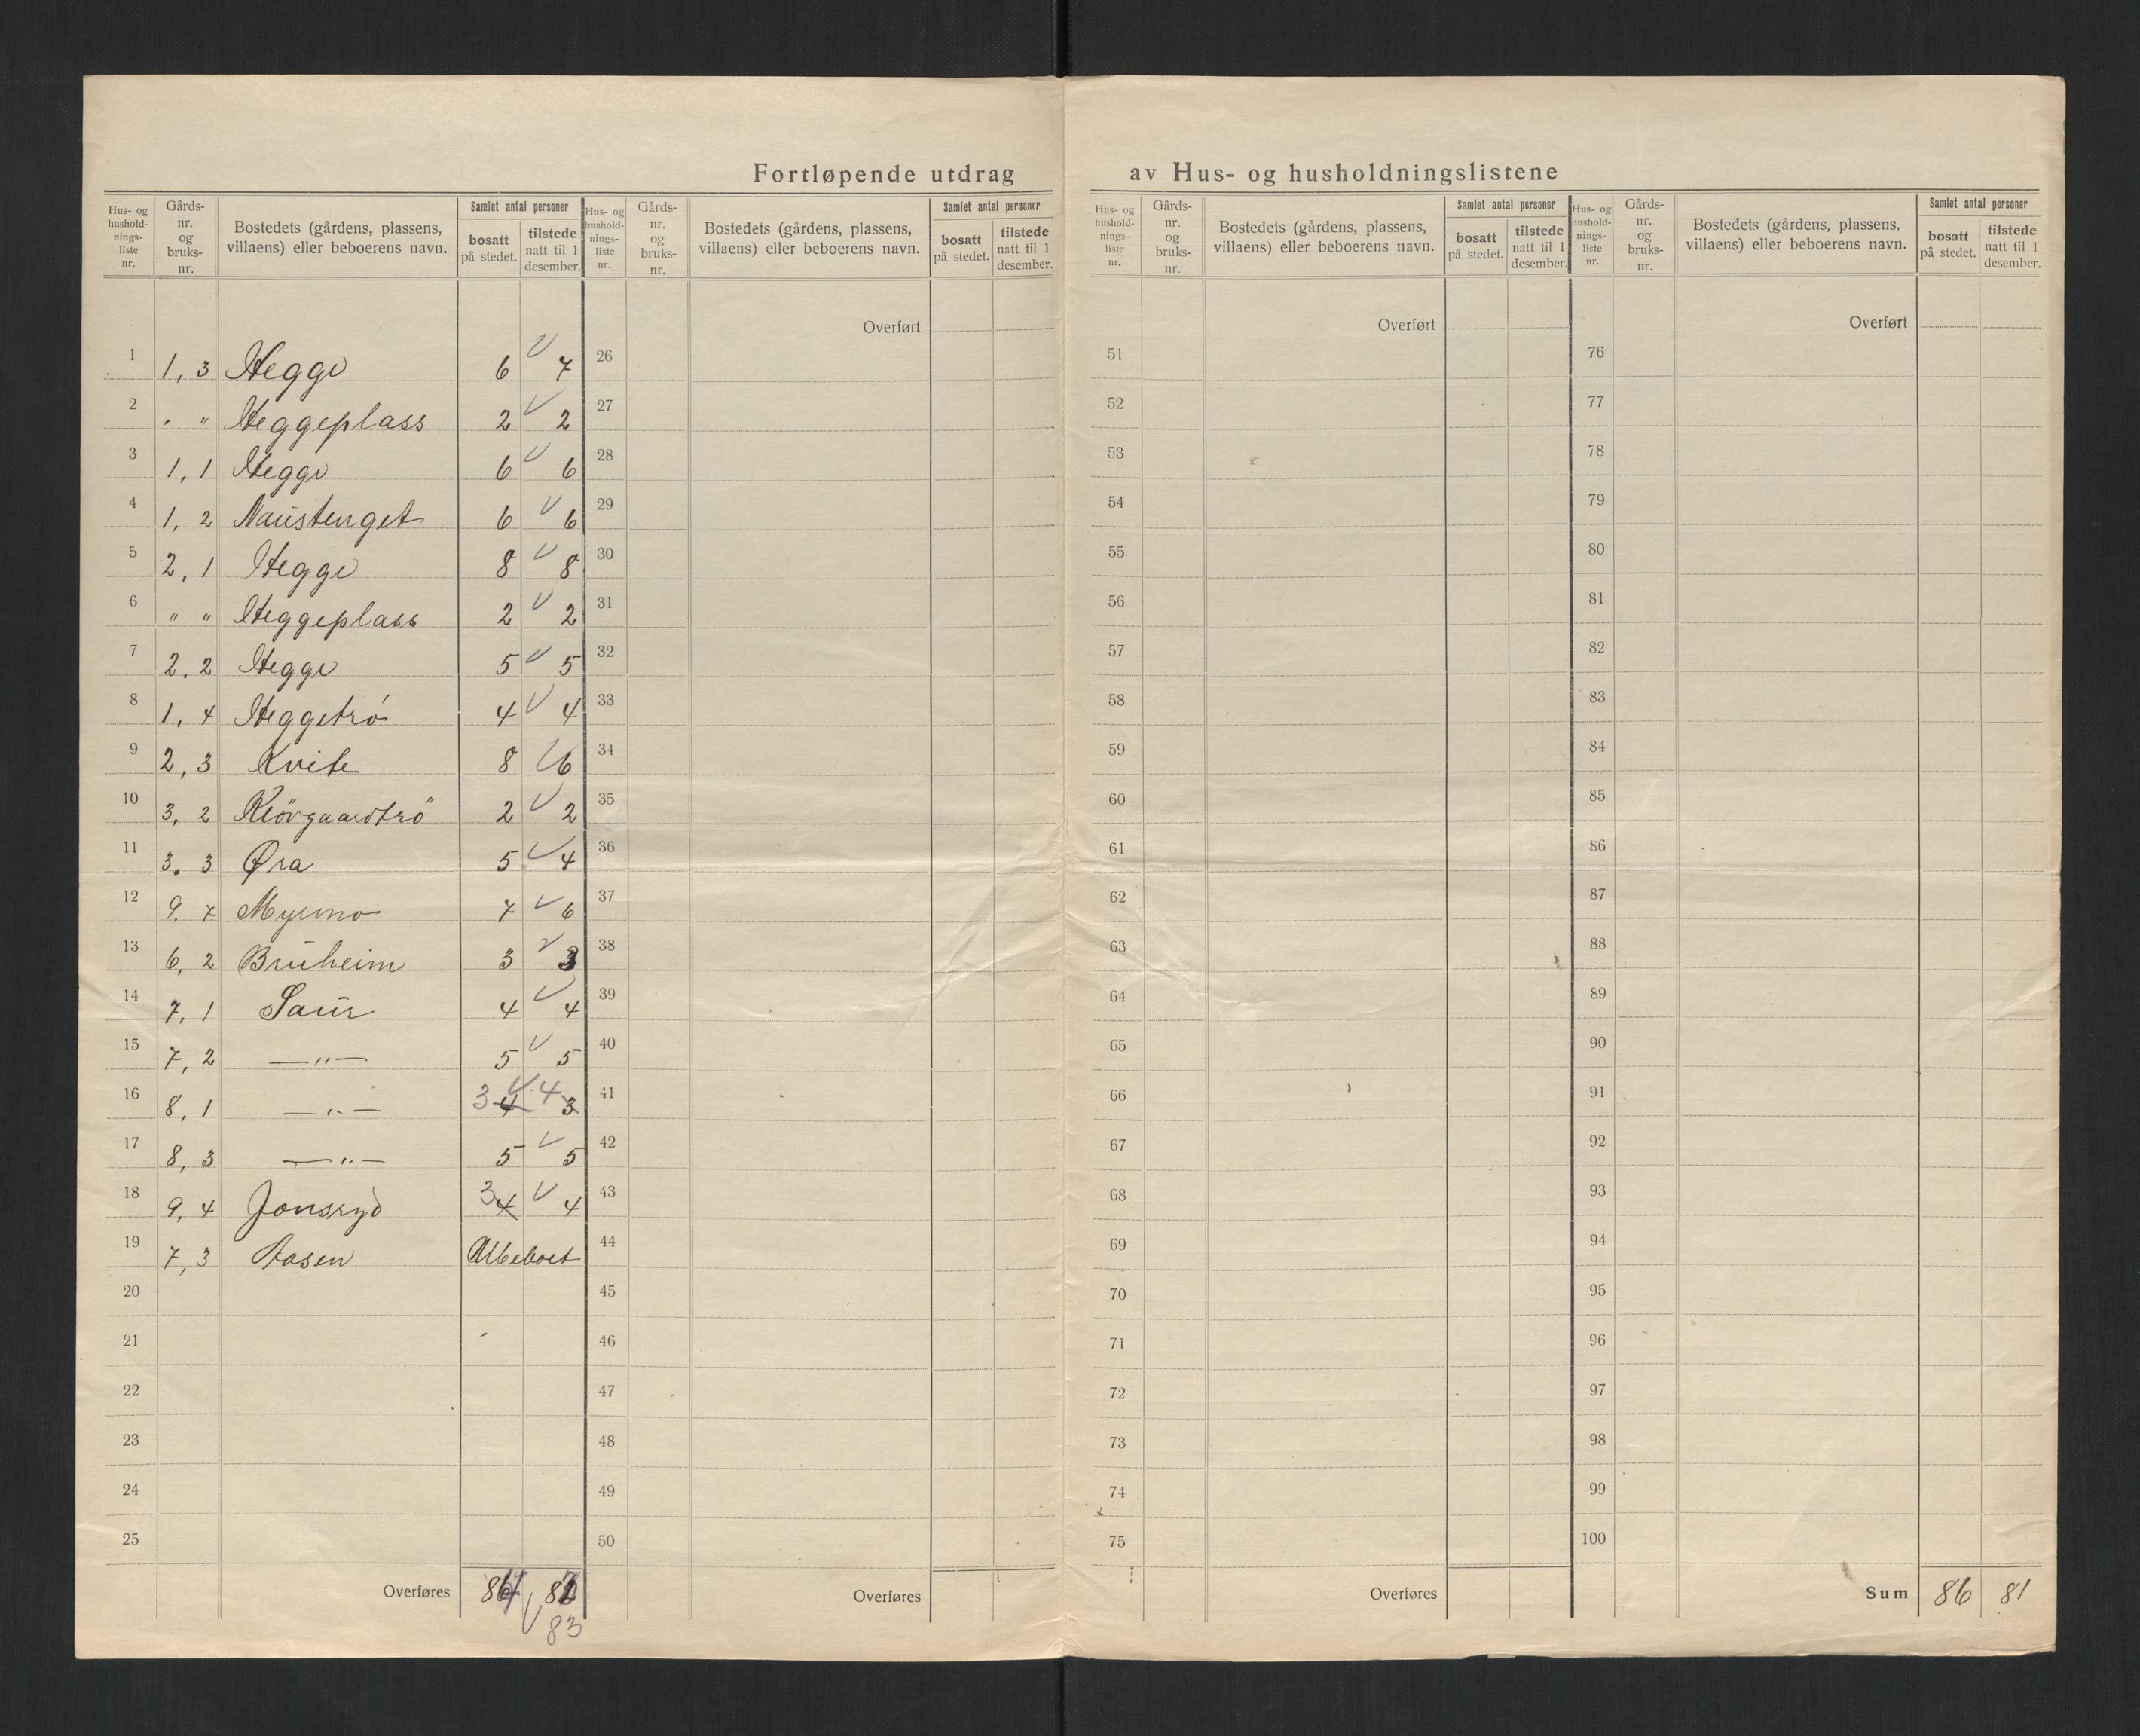 Fortløpende utdrag av Hus- og husholdningslistene
Hus- og hushold-nings-liste nr. | Gårds-nr. og bruks-nr. | Bostedets (gårdens, plassens, villaens) eller beboerens navn. | Samlet antal personer | bosatt på stedet. | tilstede natt til 1 desember.
1 | 1, 3 | Hegge | 6 | 7
2 | " " | Heggeplass | 2 | 2
3 | 1, 1 | Hegge | 6 | 6
4 | 1, 2 | Naustenget | 6 | 6
5 | 2, 1 | Hegge | 8 | 8
6 | " " | Heggeplass | 2 | 2
7 | 2. 2 | Hegge | 5 | 5
8 | 1, 4 | Heggetrö | 4 | 4
9 | 2, 3 | Kvite | 8 | 6
10 | 3, 2 | 2 | 2
11 | 3. 3 | Øra | 5 | 4
12 | 9. 7 | Myrmo | 7 | 6
13 | 6, 2 | Bruheim | 3 | 3
14 | 7, 1 | Saur | 4 | 4
15 | 7, 2 | —"— | 5 | 5
16 | 8, 1 | —"— | 3 4 | 4 3
17 | 8, 3 | —"— | 5 | 5
18 | 9, 4 | Jonsryd | 3 4 | 4
19 | 7, 3 | Aasen | Ubeboet
20
21
22
23
24
25
Overføres
83
Hus- og hushold-nings-liste nr. | Gårds-nr. og bruks-nr. | Bostedets (gårdens, plassens, villaens) eller beboerens navn. | Samlet antal personer | bosatt på stedet. | tilstede natt til 1 desember.
Overført
26
27
28
29
30
31
32
33
34
35
36
37
38
39
40
41
42
43
44
45
46
47
48
49
50
Overføres
Hus- og hushold-nings-liste nr. | Gårds-nr. og bruks-nr. | Bostedets (gårdens, plassens, villaens) eller beboerens navn. | Samlet antal personer | bosatt på stedet. | tilstede natt til 1 desember.
Overført
51
52
53
54
55
56
57
58
59
60
61
62
63
64
65
66
67
68
69
70
71
72
73
74
75
Overføres
Hus- og hushold-nings-liste nr. | Gårds-nr. og bruks-nr. | Bostedets (gårdens, plassens, villaens) eller beboerens navn. | Samlet antal personer | bosatt på stedet. | tilstede natt til 1 desember.
Overført
76
77
78
79
80
81
82
83
84
85
86
87
88
89
90
91
92
93
94
95
96
97
98
99
100
Sum | 86 | 81